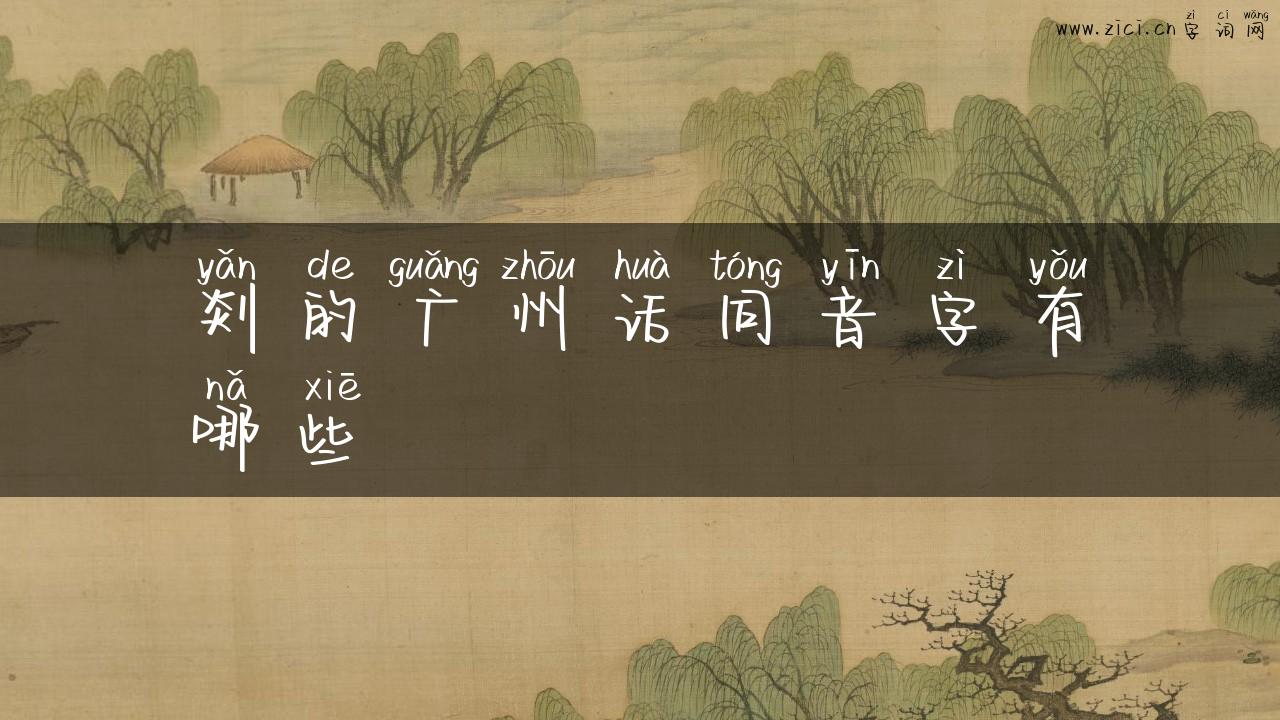 zì cí wǎng
www.zici.cn 字 词 网
yǎn de guǎng zhōu huà tóng yīn zì yǒu
剡 的 广 州 话 同 音 字 有
nǎ xiē
哪 些